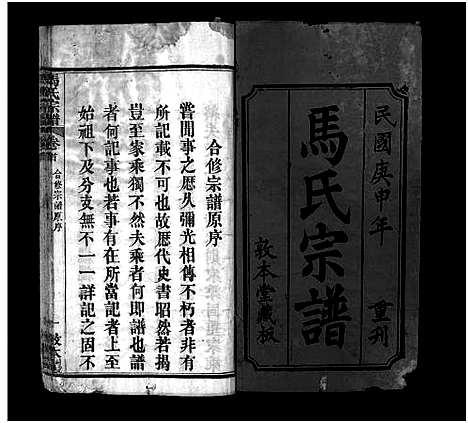 民國庚申年
重刊
馬氏宗譜
敦本堂藏板
合修宗譜原序
嘗聞事之歷久彌光相傳不朽者非有
所記載不可也故歷代史書昭然若揭
豈至家乘獨不然夫乘者何即譜也譜
者何記事也若事有在所當記者上至
始祖下及分支無不一一詳記之固不
馬氏宗譜
卷首
合修宗譜原序
一